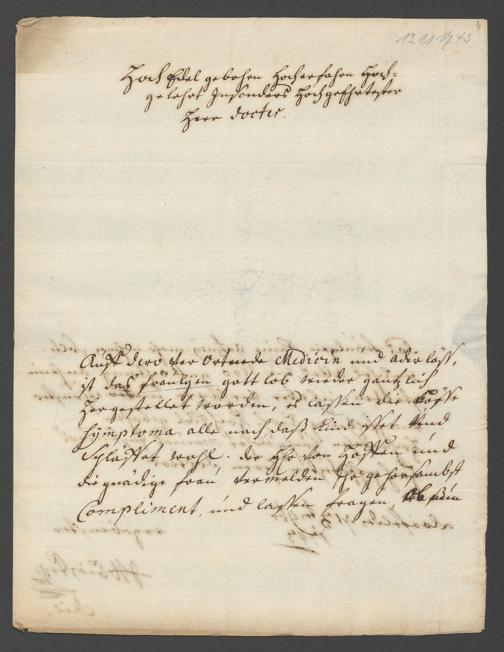 13.11.1743
Hoch Edel gebohrn Hocherfahrn Hoch-
gelehrt Insonders Hochgeehrtester
Herr doctor.
Auff dero verordnede Medicin und aderläss,
ist das fräulgen gott lob wieder gäntzlich
hergestellet worden, es lassen die bösse
Symptoma alle nach daß Kind isset und
schläffet wohl. der Hr von und
die gnädige frau vermelden Ihr gehorsambst
Compliment, und lassen fragen, ob